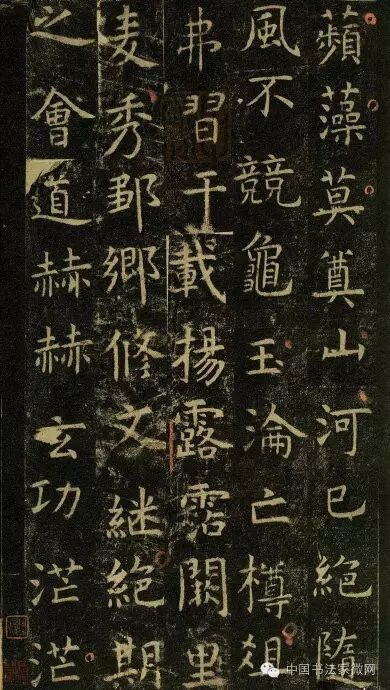 蘋藻莫奠山河已絕隨
風不競龜玉淪亡樽俎
弗習干載揚露霑闕里
麦秀鄒鄉修文継絕期
之會道赫赫玄功茫茫
中国书法家微网